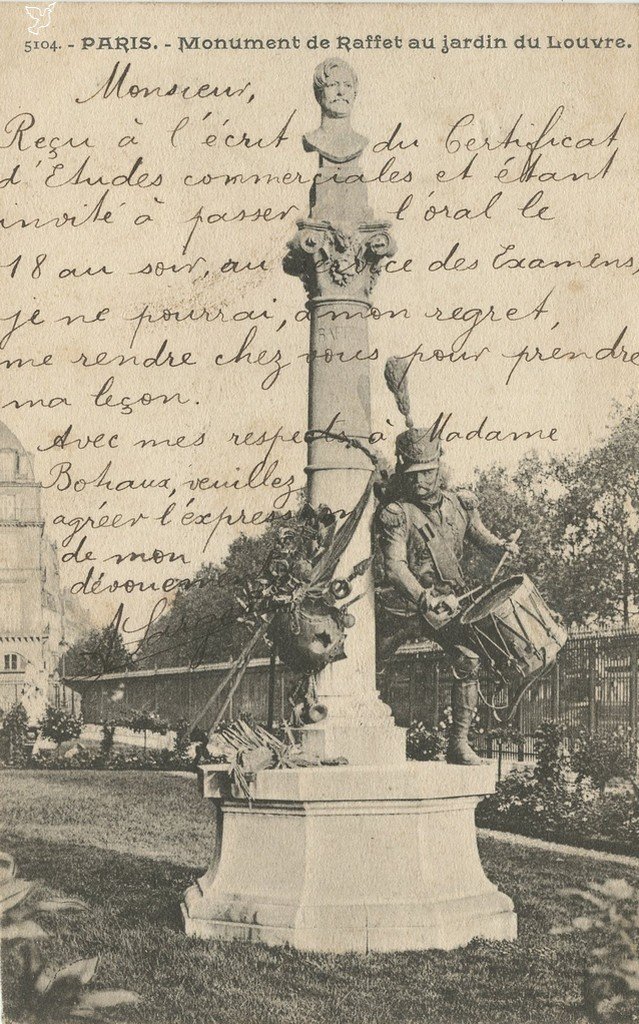 5104. - PARIS. - Monument de Raffet au jardin du Louvre.
Monsieur,
Reçu à l'écrit du Certificat
d'Etudes commerciales et étant
invité à passer l'oral le
18 au soir, au service des Examens,
je ne pourrai, à mon regret,
me rendre chez vous pour prendre
ma leçon.
Avec mes respects à Madame
veuillez
agréer l'expression
de mon
dévouement